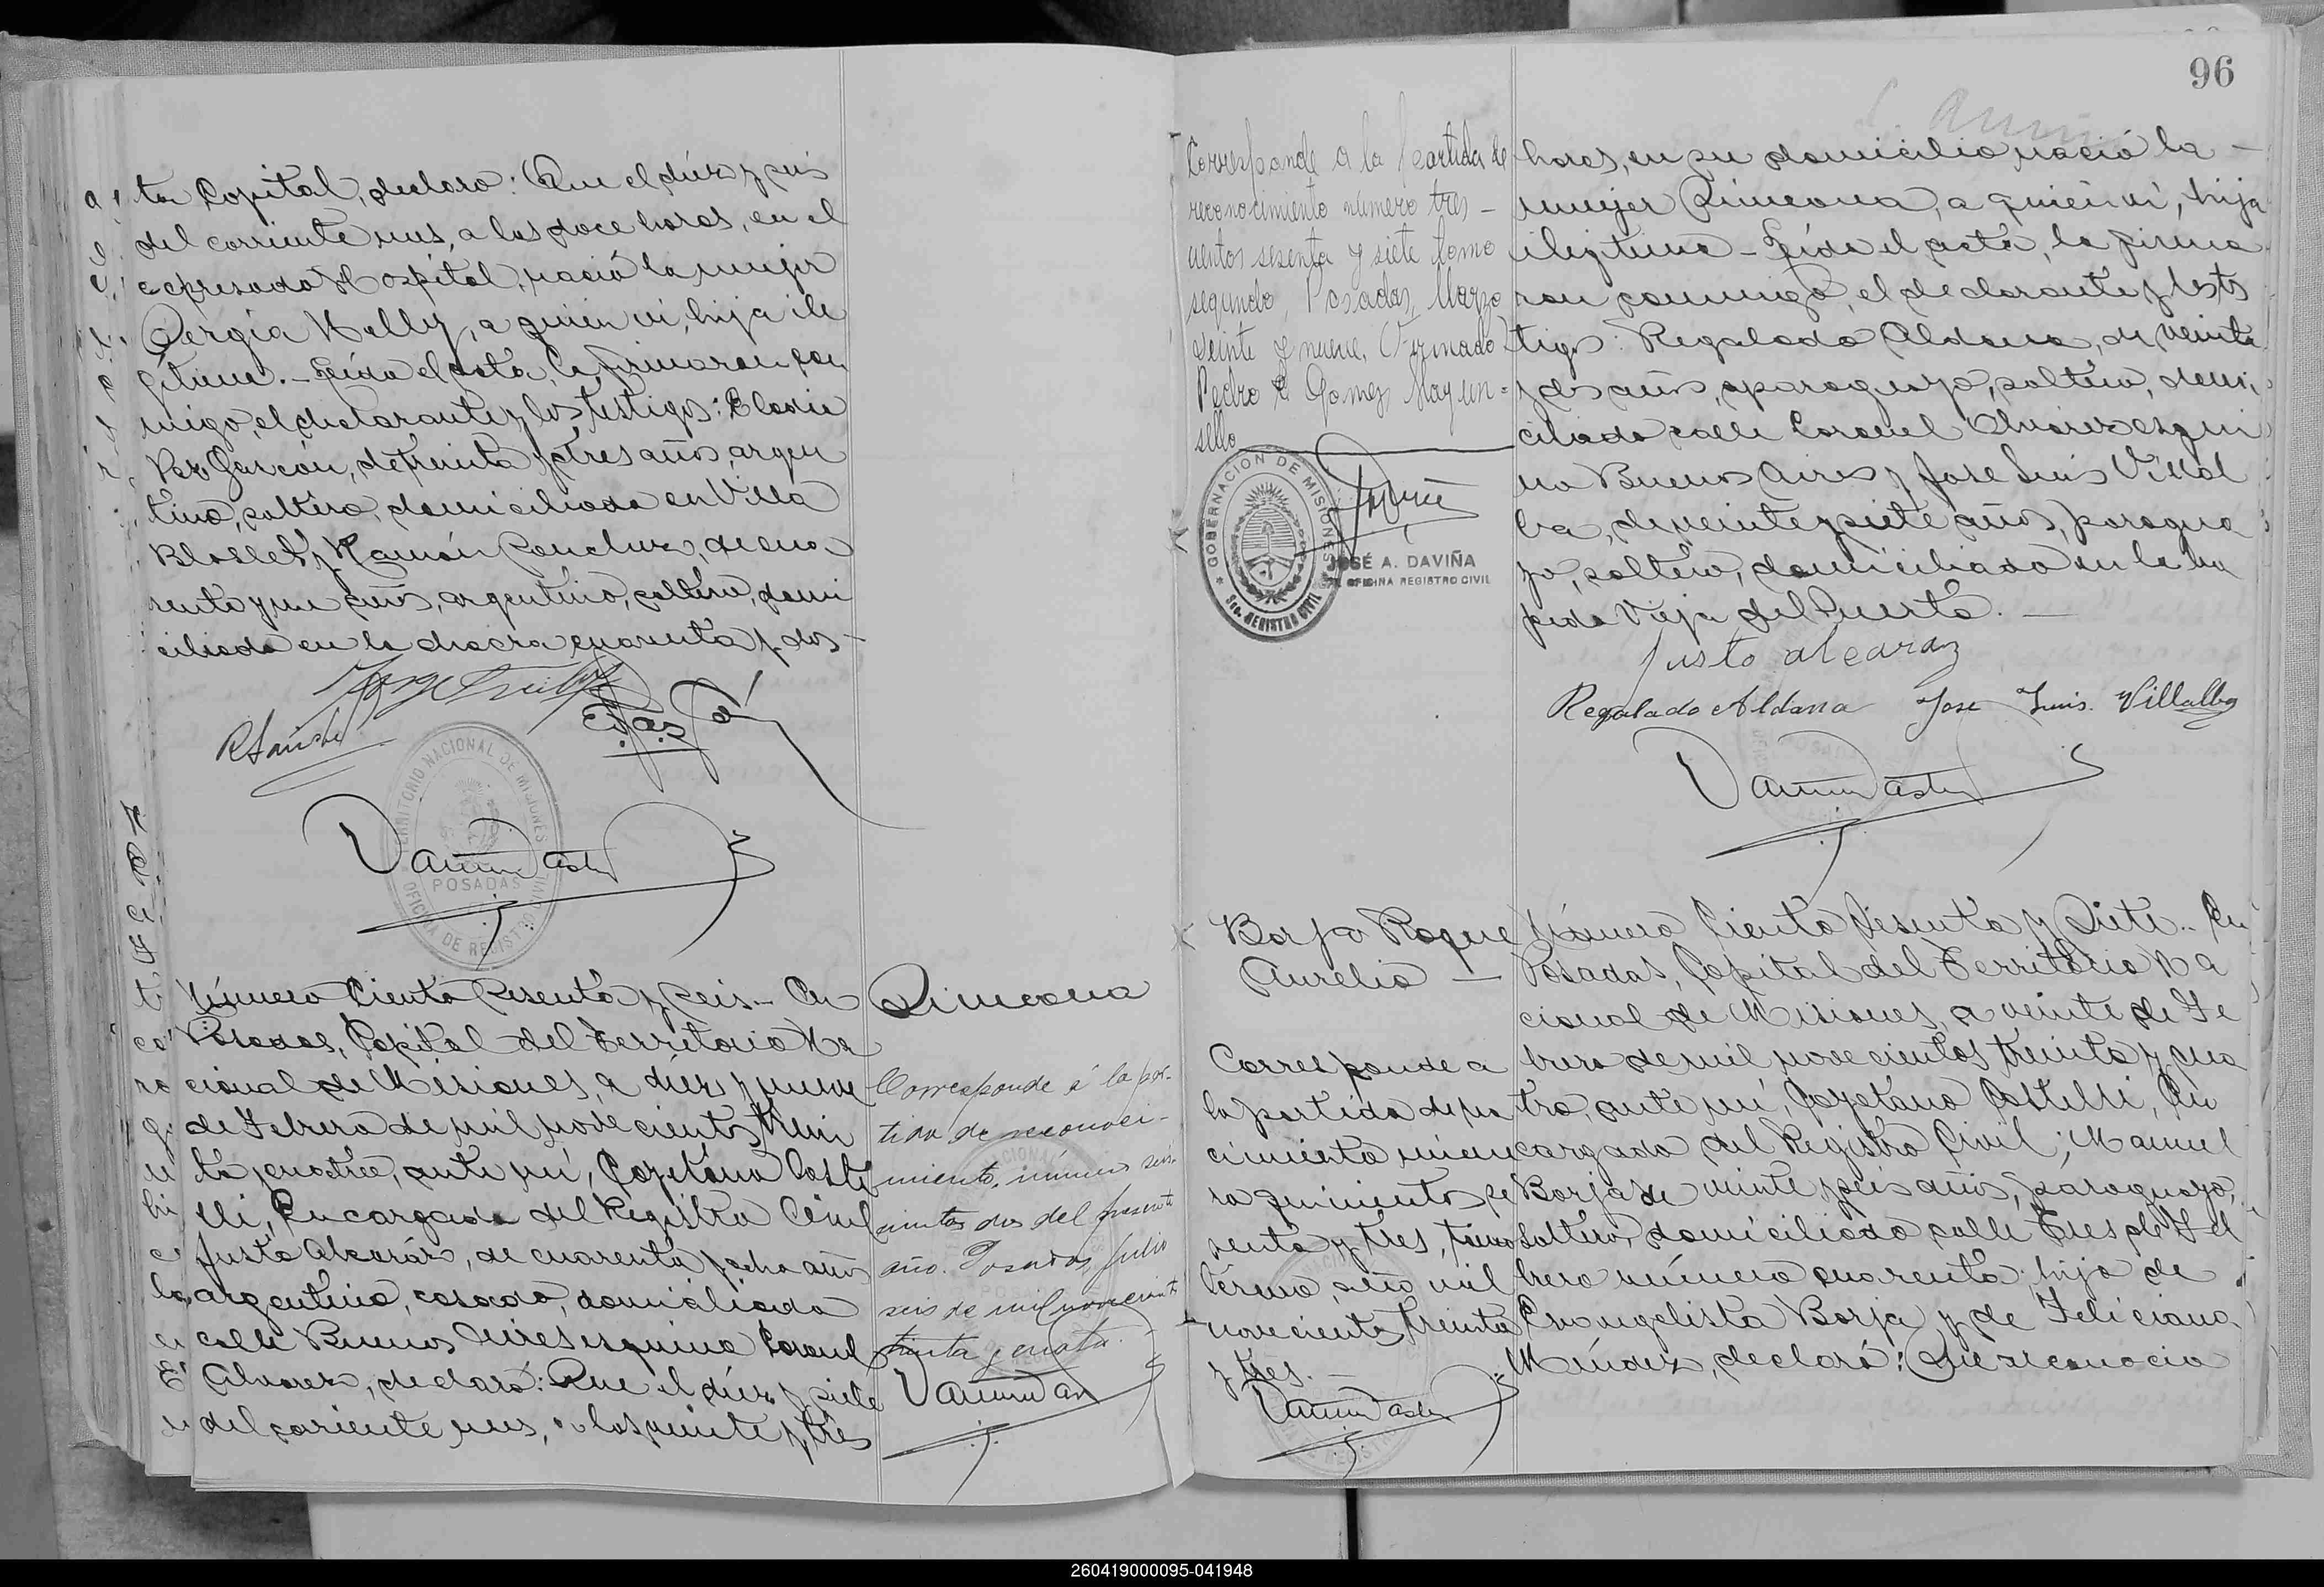 ta Capital, declaro: Que el diez y seis
del corriente mes, a las doce horas, en el
expresado Hospital, nació la mujer
Sergia Nelly, a quien vi, hija ile
gítima. — Leída el acta, la firmaron con
migo, el declarante y los testigos: Eladio
Paz Garzón, de treinta y tres años, argen
tino, soltero, domiciliado en Villa
Blosset y Ramón Sanchez, de cua
renta y un años, argentino, soltero, domi
ciliado en la chacra cuarenta y dos —
R Sanchez
E. Paz G
TERRITORIO NACIONAL DE MISIONES
POSADAS
OFICINA DE REGISTRO CIVIL
Número Ciento Sesenta y seis — En
Posadas, Capital del Territorio Na
cional de Misiones, a diez y nueve
de Febrero de mil novecientos trein
ta y cuatro, ante mí, Cayetano Caste
lli, Encargado del Registro Civil
Justo Alcaráz, de cuarenta y ocho años
argentino, casado, domiciliado
calle Buenos Aires esquina Coronel
Alvarez, declaró: Que el diez y siete
del corriente mes, a las veinte y tres
Simeona
Corresponde á la par-
tida de reconoci-
miento, número seis-
cientos dos del presente
año. Posadas, Julio
seis de mil novecientos
treinta y cuatro. —
96
Corresponde a la partida de
reconocimiento número tres —
cientos sesenta y siete tomo
segundo, Posadas, Marzo
veinte y nueve. Firmado
Pedro E Gomez Hay un =
sello
GOBERNACION DE MISIONES
REGISTRO CIVIL
JOSÉ A. DAVIÑA
OFICINA REGISTRO CIVIL
horas, en su domicilio nació la —
mujer Simeona, a quien vi, hija
ilegítima — Leída el acta, la firma
ron conmigo, el declarante y testi
tigos: Regalado Aldana, de veinte
y dos años, paraguayo, soltero, domi
ciliado calle Coronel Alvarez esqui
na Buenos Aires y José Luis Villal
ba, de veinte y siete años, paragua
yo, soltero, domiciliado en la ba
jada Vieja del Puerto. —
Justo alcaraz
Regalado Aldana Jose Luis. Villalba
Borja Roque
Aurelio —
Corresponde a
la partida de na
cimiento núme
ro quinientos se
senta y tres, tomo
tércero, año mil
novecientos treinta
y tres. —
Número Ciento Sesenta y Siete.. En
Posadas, Capital del Territorio Na
cional de Misiones, a veinte de Fe
brero de mil novecientos treinta y cua
tro, ante mí, Cayetano Castelli, En
cargado del Registro Civil; Manuel
Borja de veinte y seis años, paraguayo,
soltero, domiciliado calle Tres de Fe
brero número cuarenta; hijo de
Evangelista Borja y de Feliciana
Méndez, declaró: Que reconocia
260419000095-041948